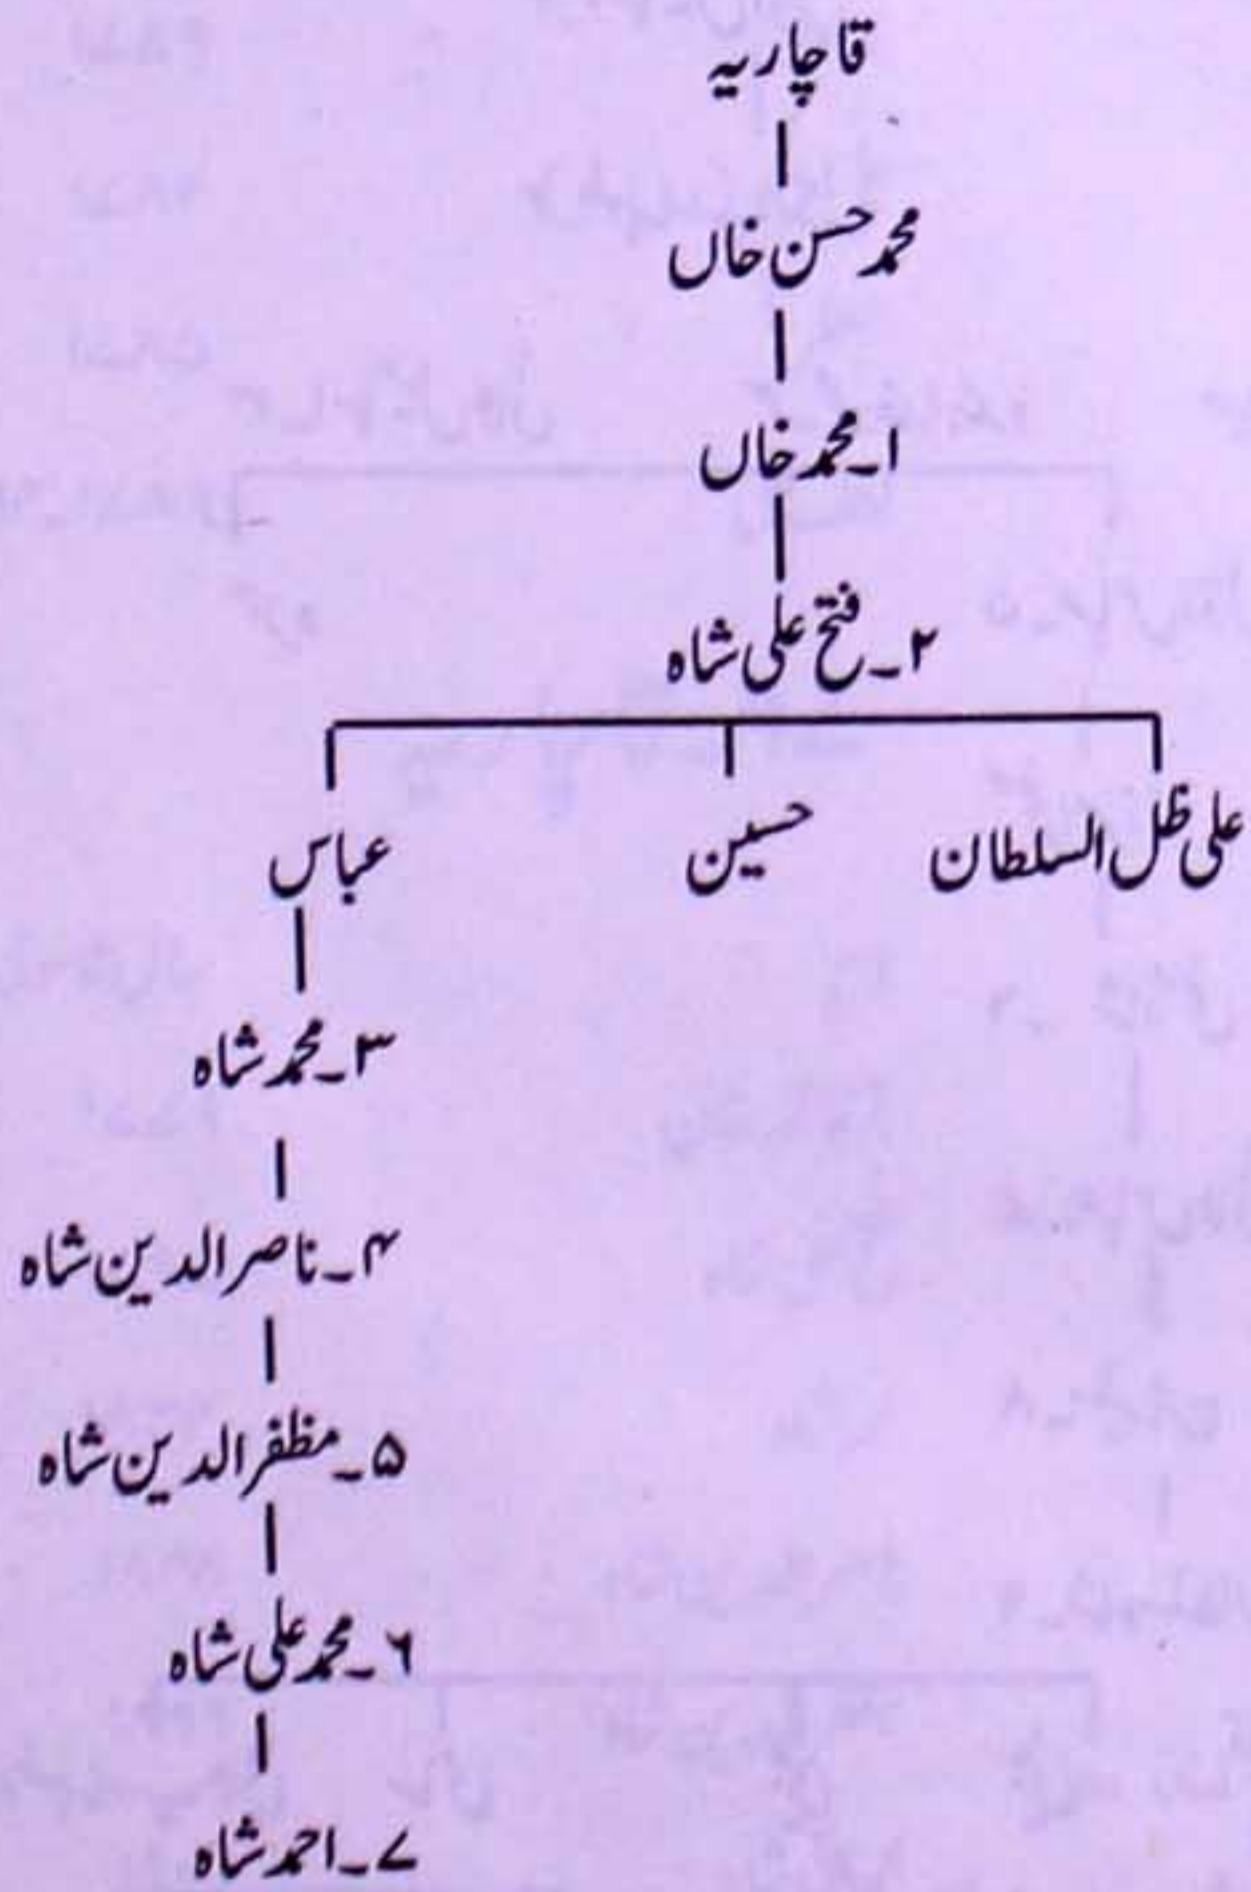 قاچاریہ
محمد حسن خاں
۱۔ محمد خاں
۲۔ فتح علی شاہ
علی ظل السلطان حسین عباس
۳۔ محمد شاہ
۴۔ ناصر الدین شاہ
۵۔ مظفر الدین شاہ
۶۔ محمد علی شاہ
۷۔ احمد شاہ